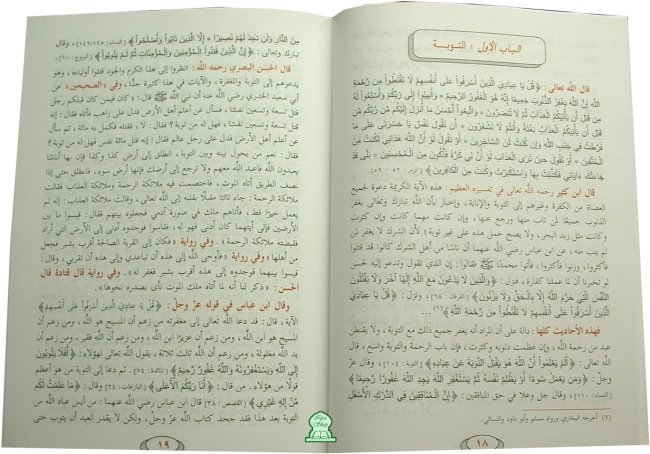 الباب الأول : التوبة
قال الله تعالى : ﴿ قُلْ يَا عِبَادِيَ الَّذِينَ أَسْرَفُوا عَلَى أَنفُسِهِمْ لَا تَقْنَطُوا مِن رَّحْمَةِ
اللَّهِ إِنَّ اللَّهَ يَغْفِرُ الذُّنُوبَ جَمِيعًا إِنَّهُ هُوَ الْغَفُورُ الرَّحِيمُ * وَأَنِيبُوا إِلَى رَبِّكُمْ وَأَسْلِمُوا لَهُ
مِن قَبْلِ أَن يَأْتِيَكُمُ الْعَذَابُ ثُمَّ لَا تُنصَرُونَ * وَاتَّبِعُوا أَحْسَنَ مَا أُنزِلَ إِلَيْكُم مِّن رَّبِّكُم مِّن
قَبْلِ أَن يَأْتِيَكُمُ الْعَذَابُ بَغْتَةً وَأَنتُمْ لَا تَشْعُرُونَ * أَن تَقُولَ نَفْسٌ يَا حَسْرَتَى عَلَى مَا
فَرَّطتُ فِي جَنبِ اللَّهِ وَإِن كُنتُ لَمِنَ السَّاخِرِينَ * أَوْ تَقُولَ لَوْ أَنَّ اللَّهَ هَدَانِي لَكُنتُ مِنَ
الْمُتَّقِينَ * أَوْ تَقُولَ حِينَ تَرَى الْعَذَابَ لَوْ أَنَّ لِي كَرَّةً فَأَكُونَ مِنَ الْمُحْسِنِينَ * بَلَى قَدْ
جَاءَتْكَ آيَاتِي فَكَذَّبْتَ بِهَا وَاسْتَكْبَرْتَ وَكُنتَ مِنَ الْكَافِرِينَ ﴾ [الزمر: ٥٣ - ٥٩]
قال ابن كثير رحمه الله تعالى في تفسيره العظيم : هذه الآية الكريمة دعوة لجميع
العصاة من الكفرة وغيرهم إلى التوبة والإنابة، وإخبار بأن الله تبارك وتعالى يغفر
الذنوب جميعًا لمن تاب منها ورجع عنها، وإن كانت مهما كانت وإن كثرت
وكانت مثل زبد البحر، ولا يصح حمل هذه على غير توبة ؛ لأن الشرك لا يغفر لمن
لم يتب منه، عن ابن عباس رضي الله عنهما أن ناسًا من أهل الشرك كانوا قد قتلوا
فأكثروا، وزنوا فأكثروا، فأتوا محمدًا ﷺ فقالوا : إن الذي تقول وتدعو إليه لحسن
لو تخبرنا أن لما عملنا كفارة، فنزل : ﴿ وَالَّذِينَ لَا يَدْعُونَ مَعَ اللَّهِ إِلَهًا آخَرَ وَلَا يَقْتُلُونَ
النَّفْسَ الَّتِي حَرَّمَ اللَّهُ إِلَّا بِالْحَقِّ وَلَا يَزْنُونَ ﴾ [الفرقان: ٦٨]، ونزل : ﴿ قُلْ يَا عِبَادِيَ
الَّذِينَ أَسْرَفُوا عَلَى أَنفُسِهِمْ لَا تَقْنَطُوا مِن رَّحْمَةِ اللَّهِ ﴾ (١) ...
فهذه الأحاديث كلها : دالة على أن المراد أنه يغفر جميع ذلك مع التوبة، ولا يقنطن
عبد من رحمة الله، وإن عظمت ذنوبه وكثرت، فإن باب الرحمة والتوبة واسع، قال
تعالى : ﴿ أَلَمْ يَعْلَمُوا أَنَّ اللَّهَ هُوَ يَقْبَلُ التَّوْبَةَ عَنْ عِبَادِهِ ﴾ [التوبة: ١٠٤]، وقال عزَّ
وجلَّ : ﴿ وَمَن يَعْمَلْ سُوءًا أَوْ يَظْلِمْ نَفْسَهُ ثُمَّ يَسْتَغْفِرِ اللَّهَ يَجِدِ اللَّهَ غَفُورًا رَّحِيمًا ﴾
[النساء: ١١٠]، وقال جل وعلا في حق المنافقين : ﴿ إِنَّ الْمُنَافِقِينَ فِي الدَّرْكِ الْأَسْفَلِ
(١) أخرجه البخاري ورواه مسلم وأبو داود والنسائي.
١٨
مِنَ النَّارِ وَلَن تَجِدَ لَهُمْ نَصِيرًا * إِلَّا الَّذِينَ تَابُوا وَأَصْلَحُوا ﴾ [النساء: ١٤٥، ١٤٦]، وقال
تبارك وتعالى : ﴿ إِنَّ الَّذِينَ فَتَنُوا الْمُؤْمِنِينَ وَالْمُؤْمِنَاتِ ثُمَّ لَمْ يَتُوبُوا ﴾ [البروج: ١٠].
قال الحسن البصري رحمه الله : انظروا إلى هذا الكرم والجود قتلوا أولياءه، وهو
يدعوهم إلى التوبة والمغفرة، والآيات في هذا كثيرة جدًّا، وفي «الصحيحين» عن
أبي سعيد الخدري رضي الله عنه أن نبي الله ﷺ قال : «كان فيمن كان قبلكم رجل
قتل تسعة وتسعين نفسًا، فسأل عن أعلم أهل الأرض فدل على راهب فأتاه فقال : إنه
قتل تسعة وتسعين نفسًا، فهل له من توبة؟ فقال : لا، فقتله فكمل به مائة، ثم سأل
عن أعلم أهل الأرض فدل على رجل عالم فقال : إنه قتل مائة نفس فهل له من توبة؟
فقال : نعم من يحول بينه وبين التوبة، انطلق إلى أرض كذا وكذا فإن بها أناسًا
يعبدون الله فاعبد الله معهم ولا ترجع إلى أرضك فإنها أرض سوء، فانطلق حتى إذا
نصف الطريق أتاه الموت، فاختصمت فيه ملائكة الرحمة وملائكة العذاب فقالت
ملائكة الرحمة : جاء تائبًا مقبلًا بقلبه إلى الله تعالى، وقالت ملائكة العذاب : إنه لم
يعمل خيرًا قط، فأتاهم ملك في صورة آدمي فجعلوه بينهم فقال : قيسوا ما بين
الأرضين فإلى أيتهما كان أدنى فهو له، فقاسوا فوجدوه أدنى إلى الأرض التي أراد
فقبضته ملائكة الرحمة». وفي رواية «فكان إلى القرية الصالحة أقرب بشبر فجعل
من أهلها» وفي رواية «فأوحى الله إلى هذه أن تباعدي وإلى هذه أن تقربي، وقال :
قيسوا بينهما فوجدوه إلى هذه أقرب بشبر فغفر له». وفي رواية قال قتادة قال
الحسن : ذكر لنا أنه لما أتاه ملك الموت نأى بصدره نحوها».
وقال ابن عباس في قوله عزَّ وجلَّ : ﴿ قُلْ يَا عِبَادِيَ الَّذِينَ أَسْرَفُوا عَلَى أَنفُسِهِمْ ﴾
الآية، قال : قد دعا الله تعالى إلى مغفرته من زعم أن المسيح هو الله، ومن زعم أن
المسيح هو ابن الله، ومن زعم أن عزيرًا ابن الله، ومن زعم أن الله فقير، ومن زعم أن
يد الله مغلولة، ومن زعم أن الله ثالث ثلاثة، يقول الله تعالى لهؤلاء : ﴿ أَفَلَا يَتُوبُونَ
إِلَى اللَّهِ وَيَسْتَغْفِرُونَهُ وَاللَّهُ غَفُورٌ رَّحِيمٌ ﴾ [المائدة: ٧٤]. ثم دعا إلى التوبة من هو أعظم
قولًا من هؤلاء. من قال : ﴿ أَنَا رَبُّكُمُ الْأَعْلَى ﴾ [النازعات: ٢٤] وقال : ﴿ مَا عَلِمْتُ لَكُم
مِّنْ إِلَهٍ غَيْرِي ﴾ [القصص: ٣٨] قال ابن عباس رضي الله عنهما : من آيس عباد الله من
التوبة بعد هذا فقد جحد كتاب الله عزَّ وجلَّ، ولكن لا يقدر العبد أن يتوب حتى
١٩